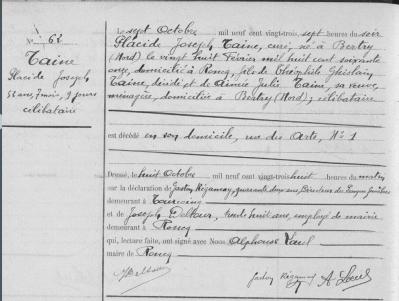 N° 62
Taine
Placide Joseph
52 ans, 7 mois, 9 jours
célibataire
Le sept Octobre mil neuf cent vingt-trois sept heures du soir
Placide Joseph Taine, curé, né à Bertry
(Nord) le vingt huit Février mil huit cent soixante
onze, domicilié à Roncq, fils de Théophile Ghislain
Taine, décédé et de Aimée Julie Taine, sa veuve,
ménagère, domiciliée à Bertry (Nord); célibataire
est décédé en son domicile, rue des Arts, N° 1
Dressé, le huit Octobre mil neuf cent vingt-trois huit heures du matin
sur la déclaration de Gaston Régamey, quarante deux ans, Directeur de Pompes funèbres
demeurant à Tourcoing
et de Joseph Deltour, trente huit ans, employé de mairie
demeurant à Roncq
qui, lecture faite, ont signé avec Nous Alphonse
maire de Roncq
Gaston Régamey